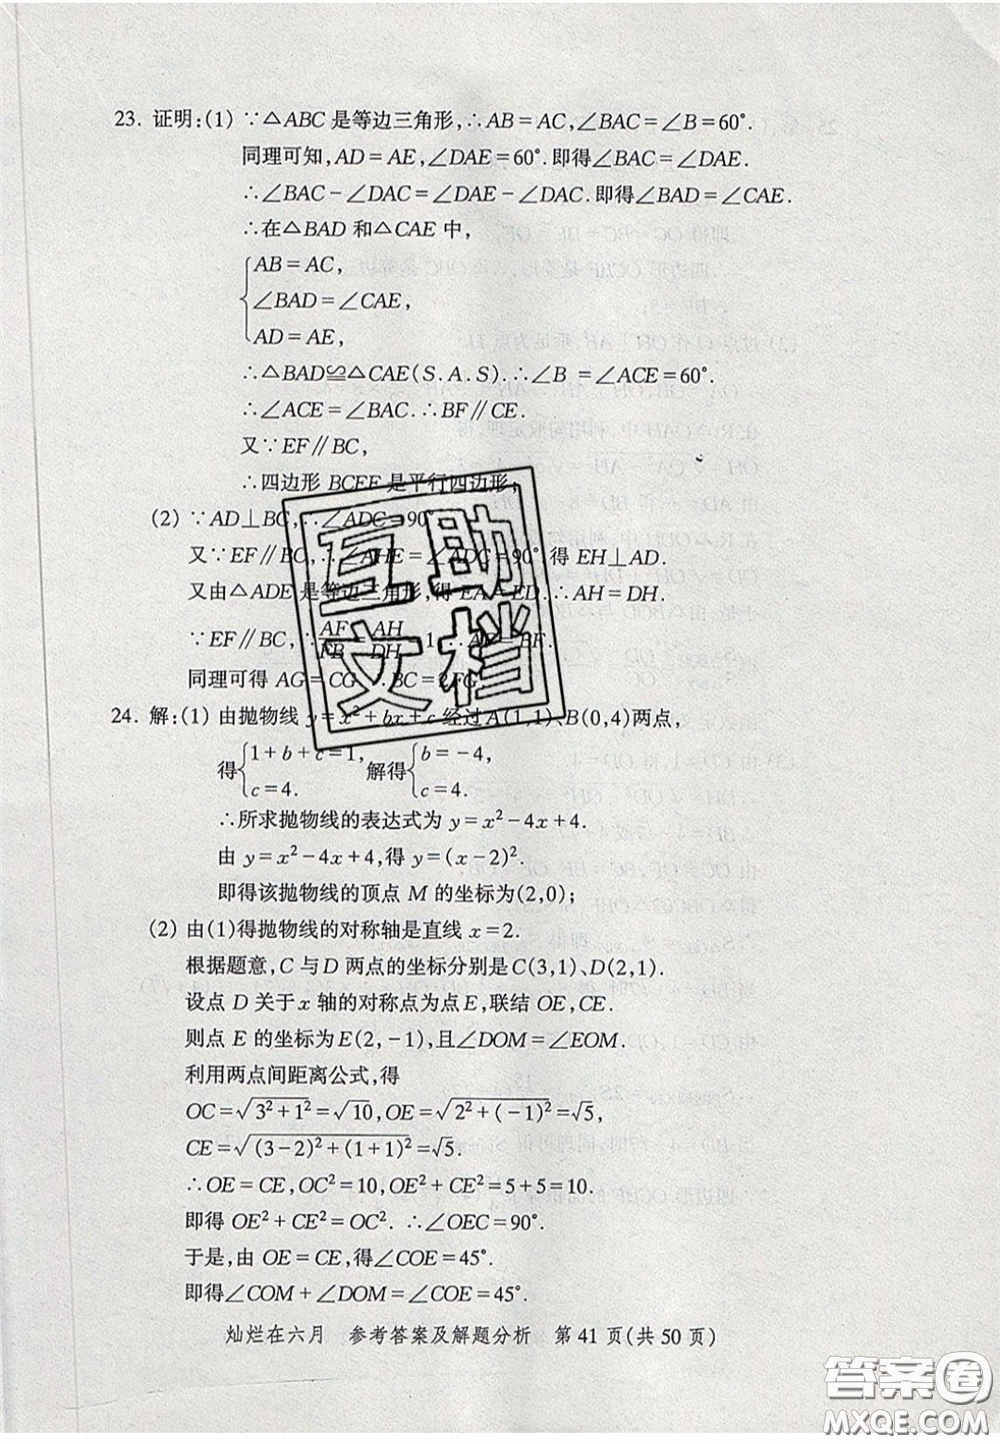 23. 证明:(1) ∵△ABC 是等边三角形,∴AB=AC,∠BAC=∠B=60°.
同理可知,AD=AE,∠DAE=60°.即得∠BAC=∠DAE.
∴∠BAC-∠DAC=∠DAE-∠DAC.即得∠BAD=∠CAE.
∴在△BAD 和△CAE 中,
AB=AC,
∠BAD=∠CAE,
AD=AE,
∴△BAD≌△CAE(S.A.S).∴∠B =∠ACE=60°.
∴∠ACE=∠BAC.∴BF∥CE.
又∵EF∥BC,
∴四边形 BCEF 是平行四边形;
(2) ∵AD⊥BC,∴∠ADC=90°
又∵EF∥BC,∴∠AHE=∠ADC=90°,得 EH⊥AD.
又由△ADE 是等边三角形,得 EA=ED.∴AH=DH.
∵EF∥BC,∴AF/FB=AH/DH=1.∴AF=BF.
同理可得 AG=CG.∴BC=2FG.
24. 解:(1) 由抛物线 y=x²+bx+c 经过A(1,1)、B(0,4)两点,
得{1+b+c=1, 解得{b=-4,
c=4. c=4.
∴所求抛物线的表达式为 y=x²-4x+4.
由 y=x²-4x+4,得 y=(x-2)².
即得该抛物线的顶点 M 的坐标为(2,0);
(2) 由(1)得抛物线的对称轴是直线 x=2.
根据题意,C 与 D 两点的坐标分别是C(3,1)、D(2,1).
设点 D 关于 x 轴的对称点为点 E,联结 OE,CE.
则点 E 的坐标为E(2,-1),且∠DOM=∠EOM.
利用两点间距离公式,得
OC=√(3²+1²)=√10,OE=√(2²+(-1)²)=√5,
CE=√((3-2)²+(1+1)²)=√5.
∴OE=CE,OC²=10,OE²+CE²=5+5=10.
即得 OE²+CE²=OC². ∴∠OEC=90°.
于是,由 OE=CE,得∠COE=45°.
即得∠COM+∠DOM=∠COE=45°.
灿烂在六月 参考答案及解题分析 第 41 页(共 50 页)
互助
文档
答案圈
MXQE.COM